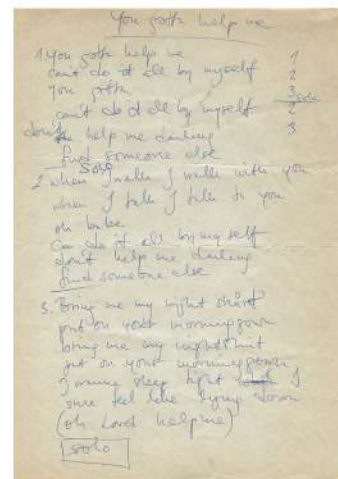 You gotta help me
1. You gotta help me 1
can't do it all by myself 2
You gotta 3 solo
can't do it all by myself 2
don't help me darling 3
find someone else
Solo
2 when I walk I walk with you
when I talk I talk to you
oh babe
can do it all by myself
don't help me darling
find someone else
3. Bring me my night shirt
put on your morninggown
bring me my nightshirt
put on your morninggown
sleep tight I
sure feel like lying down
(oh Lord help me)
solo